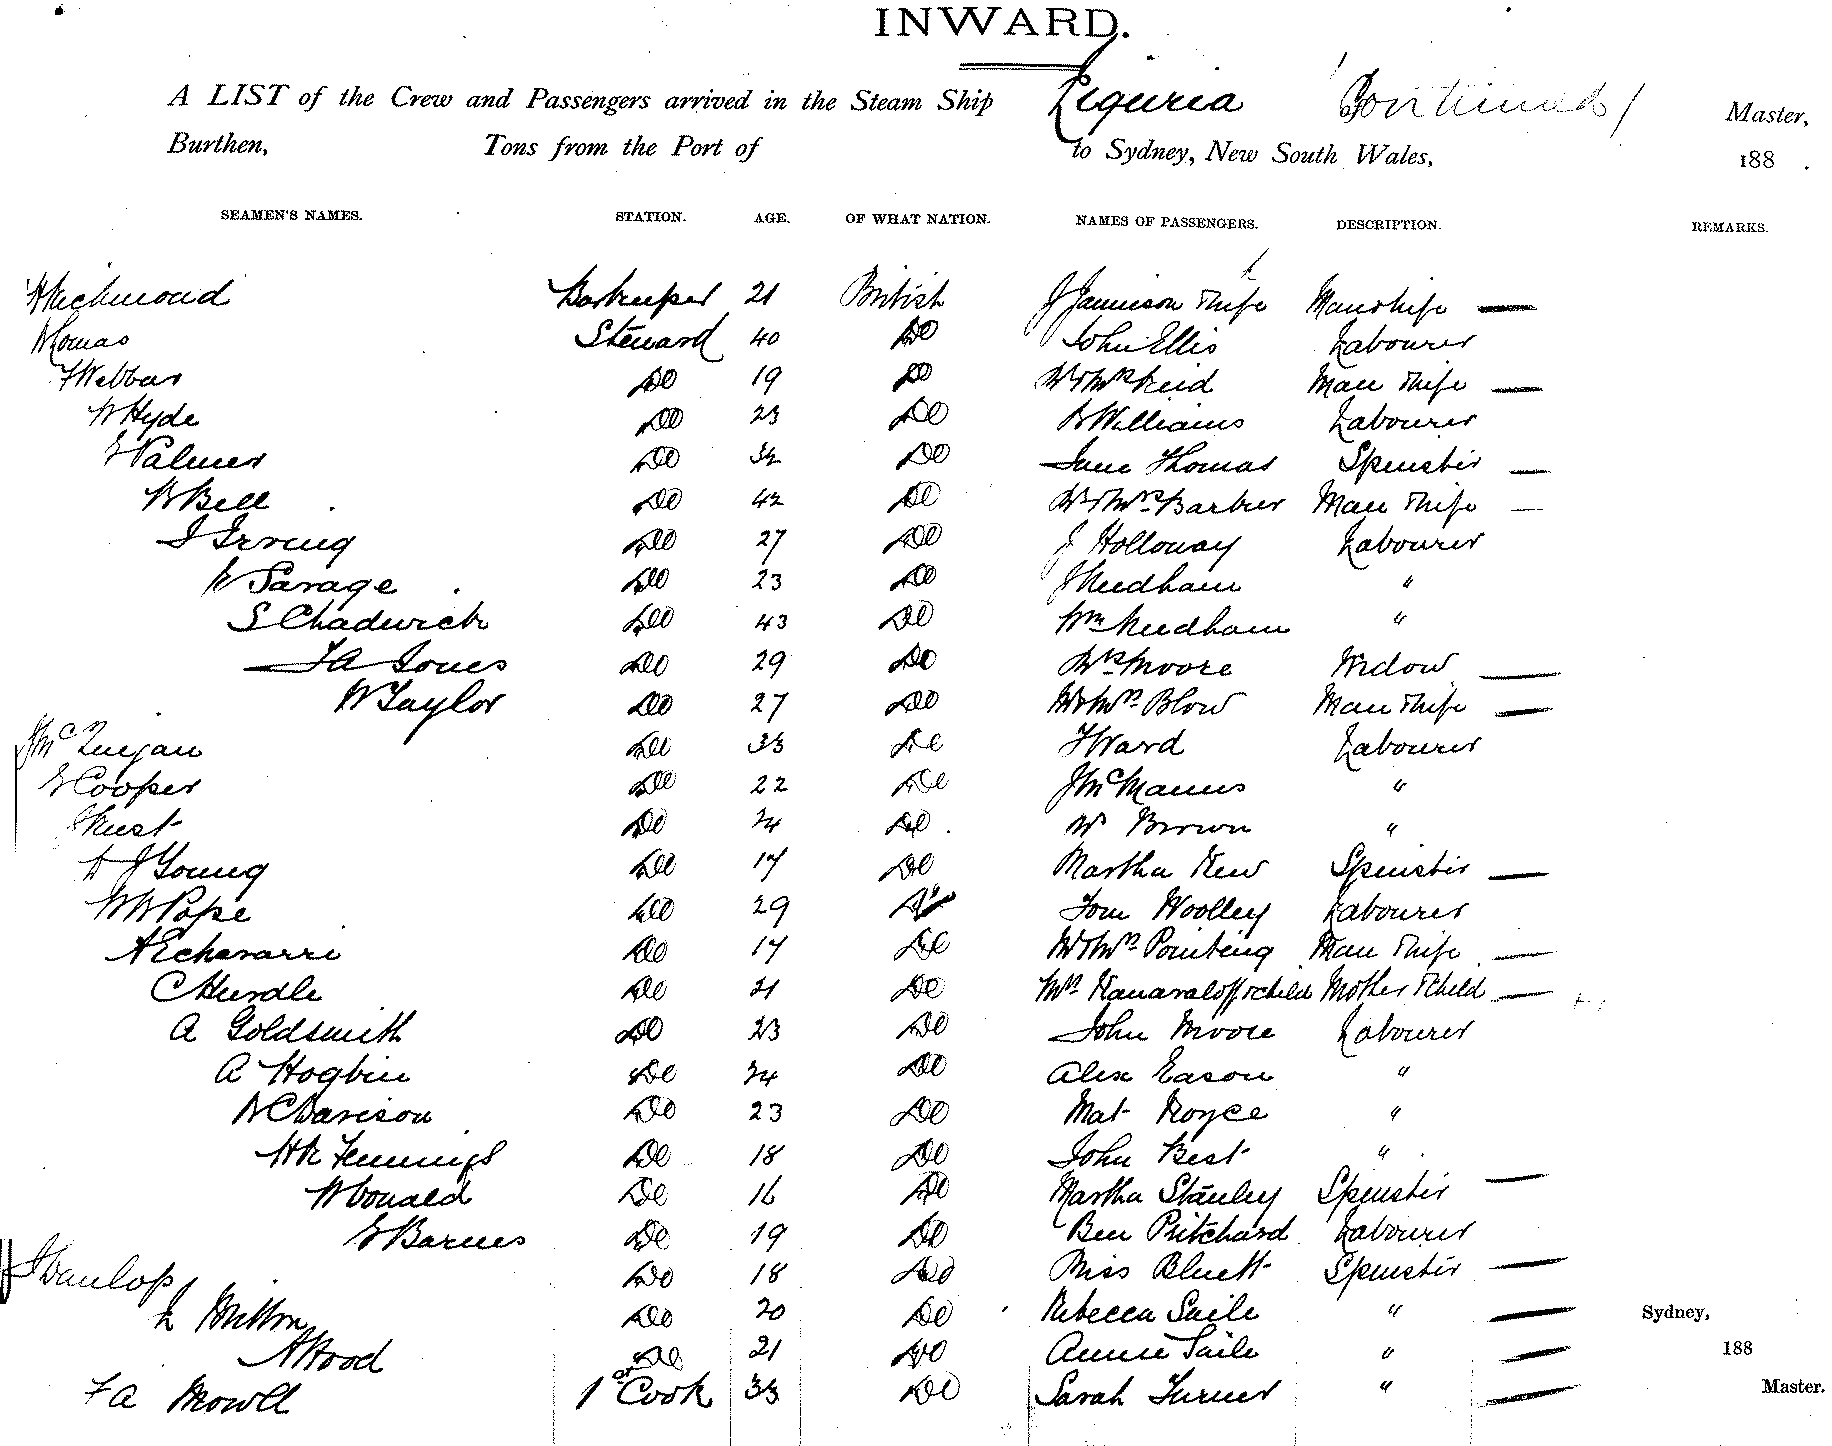 INWARD.
A LIST of the Crew and Passengers arrived in the Steam Ship Liguria Continued / Master,
Burthen, Tons from the Port of to Sydney, New South Wales, 188 .
SEAMEN'S NAMES. STATION. AGE. OF WHAT NATION. NAMES OF PASSENGERS. DESCRIPTION. REMARKS.
Richmond Barkeeper 21 British J Jamieson & Wife Man & Wife —
Lomas Steward 40 Do John Ellis Labourer
F Webber Do 19 Do Mr & Mrs Reid Man & Wife —
W Hyde Do 23 Do Williams Labourer
Palmer Do 32 Do Jane Thomas Spinster —
Bell Do 42 Do Mr & Mrs Barber Man & Wife —
J Irving Do 27 Do J Holloway Labourer
Savage Do 23 Do J Needham "
S Chadwick Do 43 Do Wm Needham "
Jones Do 29 Do Mrs Moore Widow —
W Taylor Do 27 Do Mr & Mrs Blow Man & Wife —
Do 33 Do Ward Labourer
Cooper Do 22 Do J McManus "
Do 24 Do W Brown "
J Young Do 17 Do Martha New Spinster —
Pope Do 29 Do Tom Woolley Labourer
Echevarri Do 17 Do Mr & Mrs Pointing Man & Wife —
C Hurdle Do 21 Do Mrs & child Mother & Child —
A Goldsmith Do 23 Do John Moore Labourer
A Hogbin Do 24 Do Alex Eason "
Davison Do 23 Do Mat Royce "
Jennings Do 18 Do John Best "
Donald Do 16 Do Martha Stanley Spinster —
Barnes Do 19 Do Ben Pritchard Labourer
Dunlop Do 18 Do Miss Bluett Spinster —
Do 20 Do Rebecca Saile " — Sydney,
Wood Do 21 Do Annie Saile " — 188
F A Mowll 1st Cook 33 Do Sarah Turner " — Master.